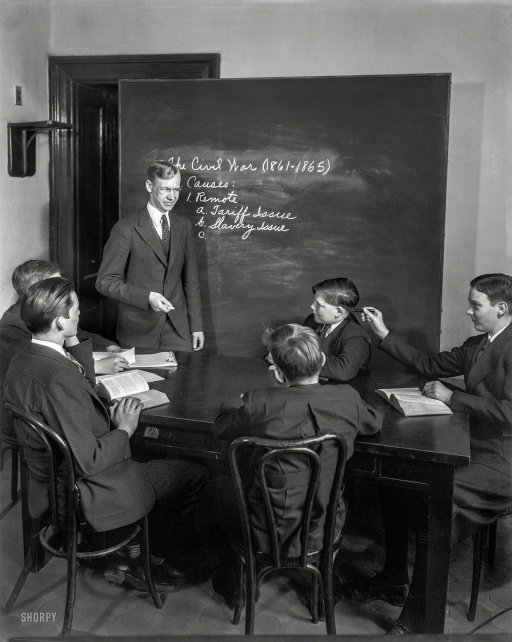 The Civil War (1861-1865)
Causes:
1. Remote
a. Tariff Issue
b. Slavery Issue
c.
SHORPY